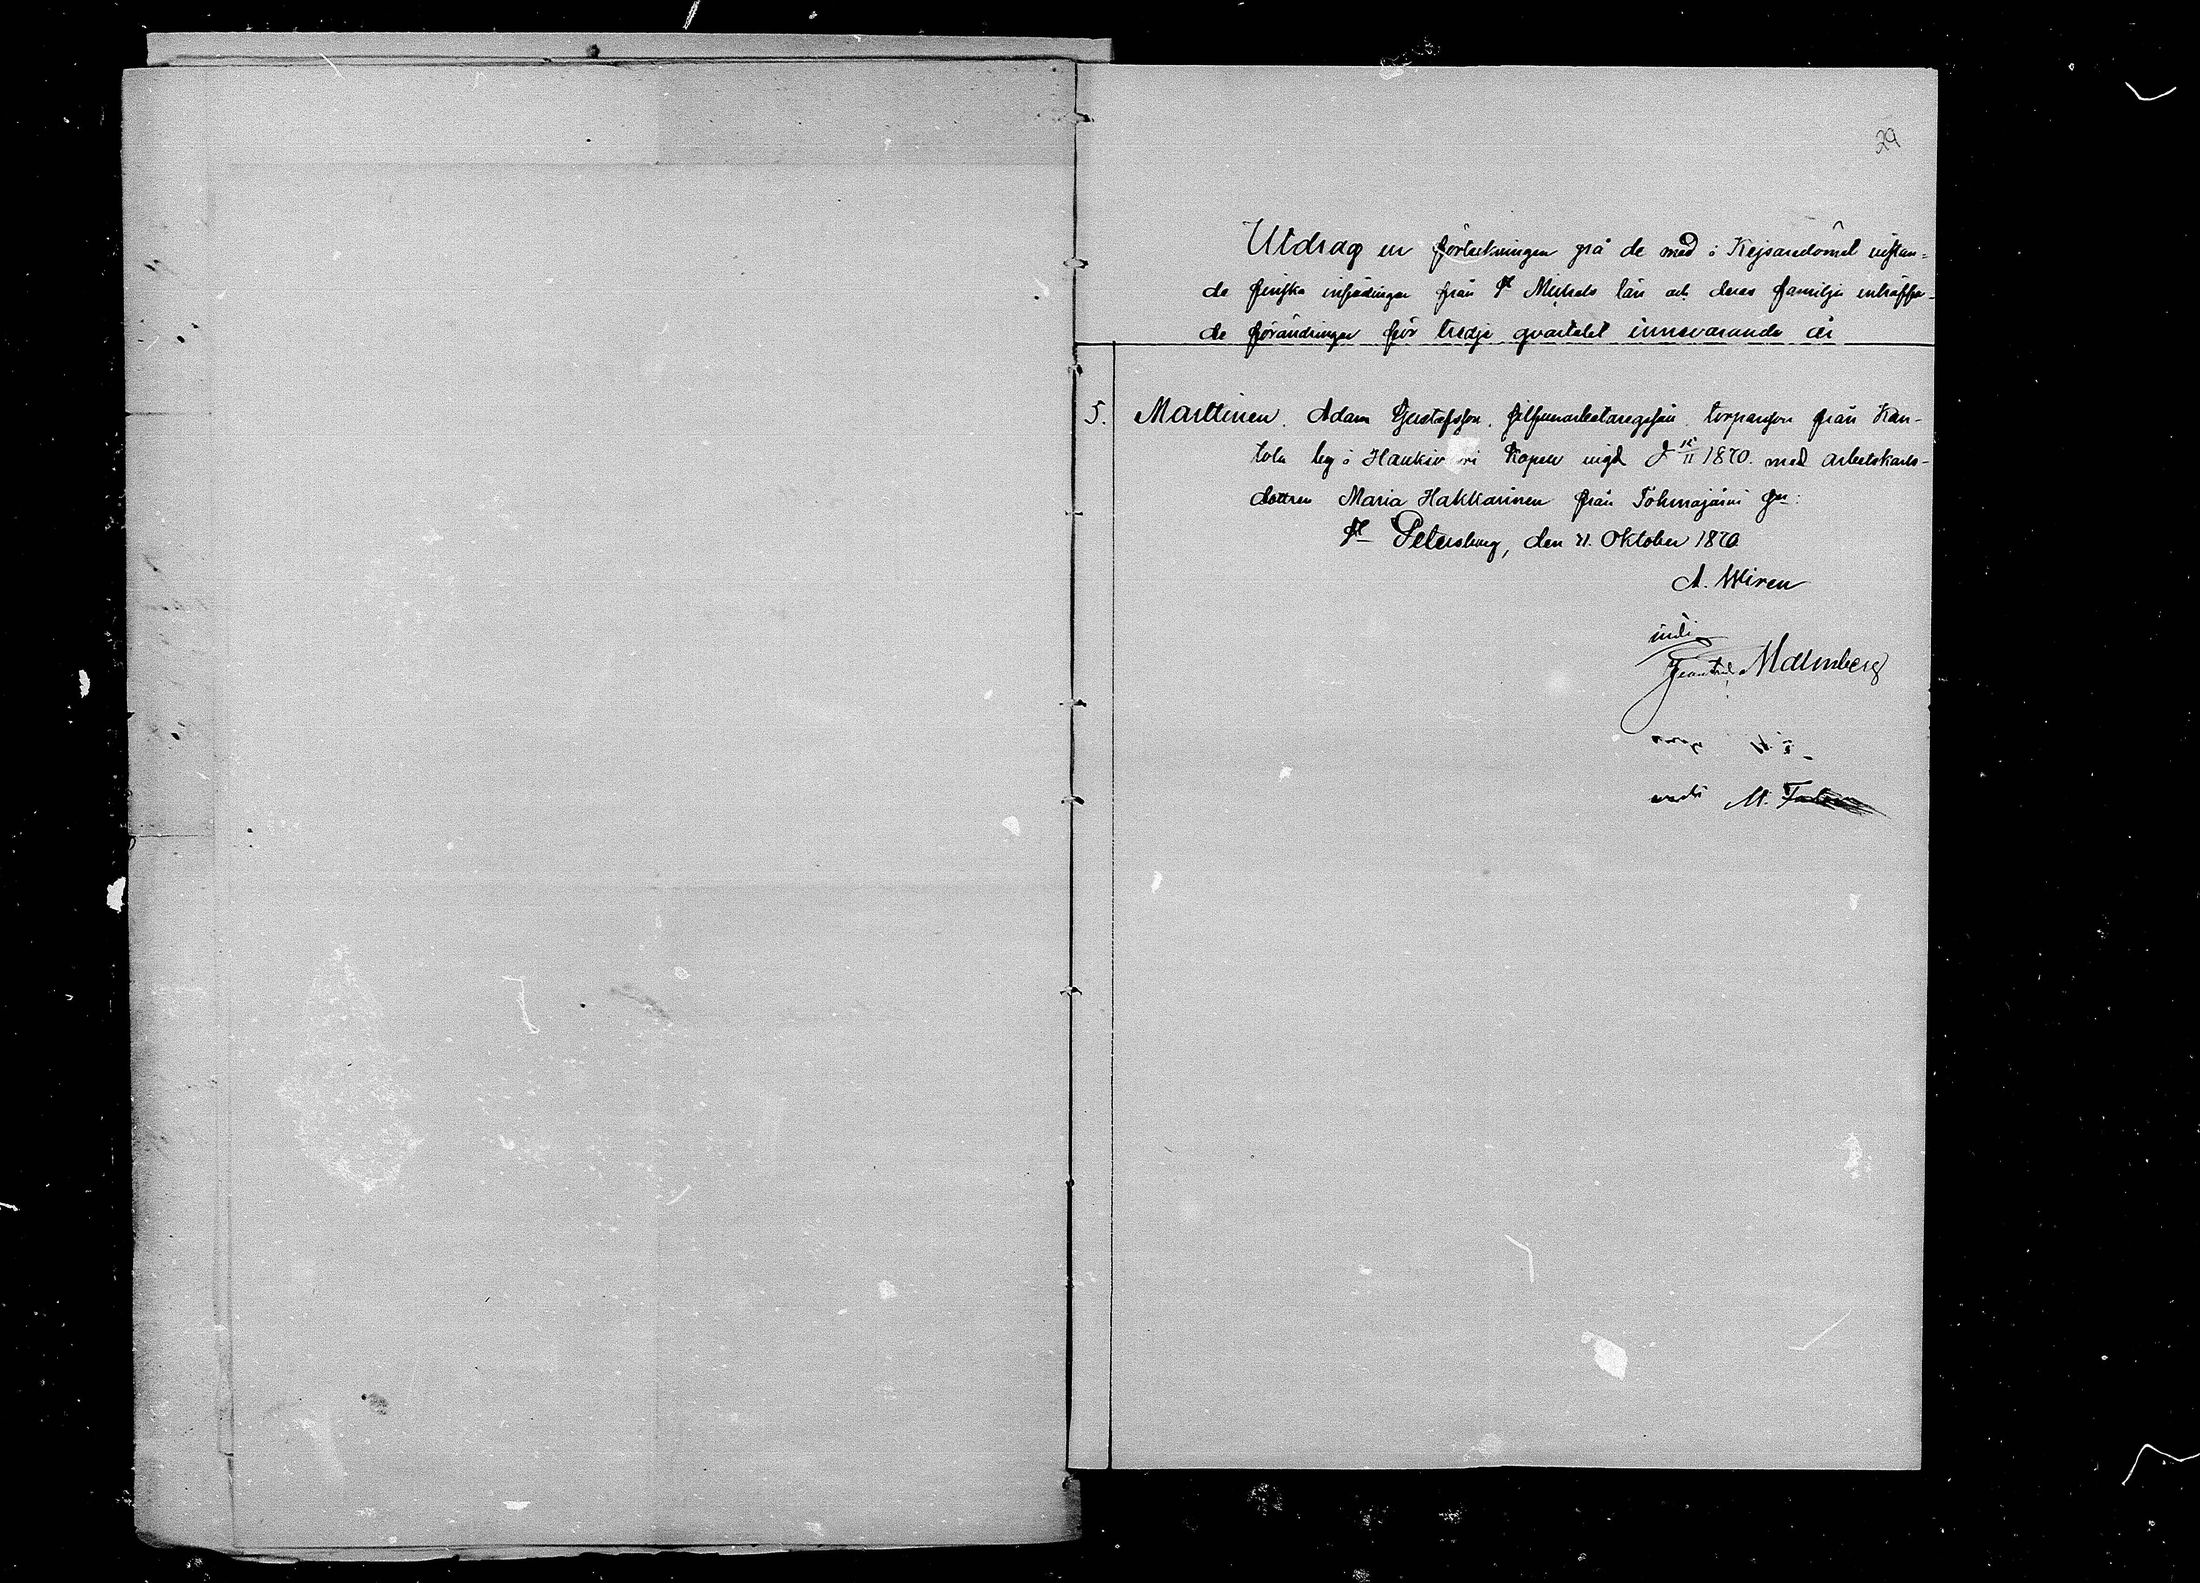 29
Utdrag ur förteckningen på de med i Kejsaredömet vistan-
de finska infödingar från St Michels län och deras familjer inträffa-
de förändringar för tredje qvartalet innevarande år
5. Marttinen, Adam Gustafsson, torpareson från Kan-
tola by i Haukivuori Kapell vigd d 1870 med arbetskarls-
dottren Maria Hakkarinen från Tohmajärvi
St Petersburg, den 21. Oktober 1870
A. Wiren
Malmberg
M.